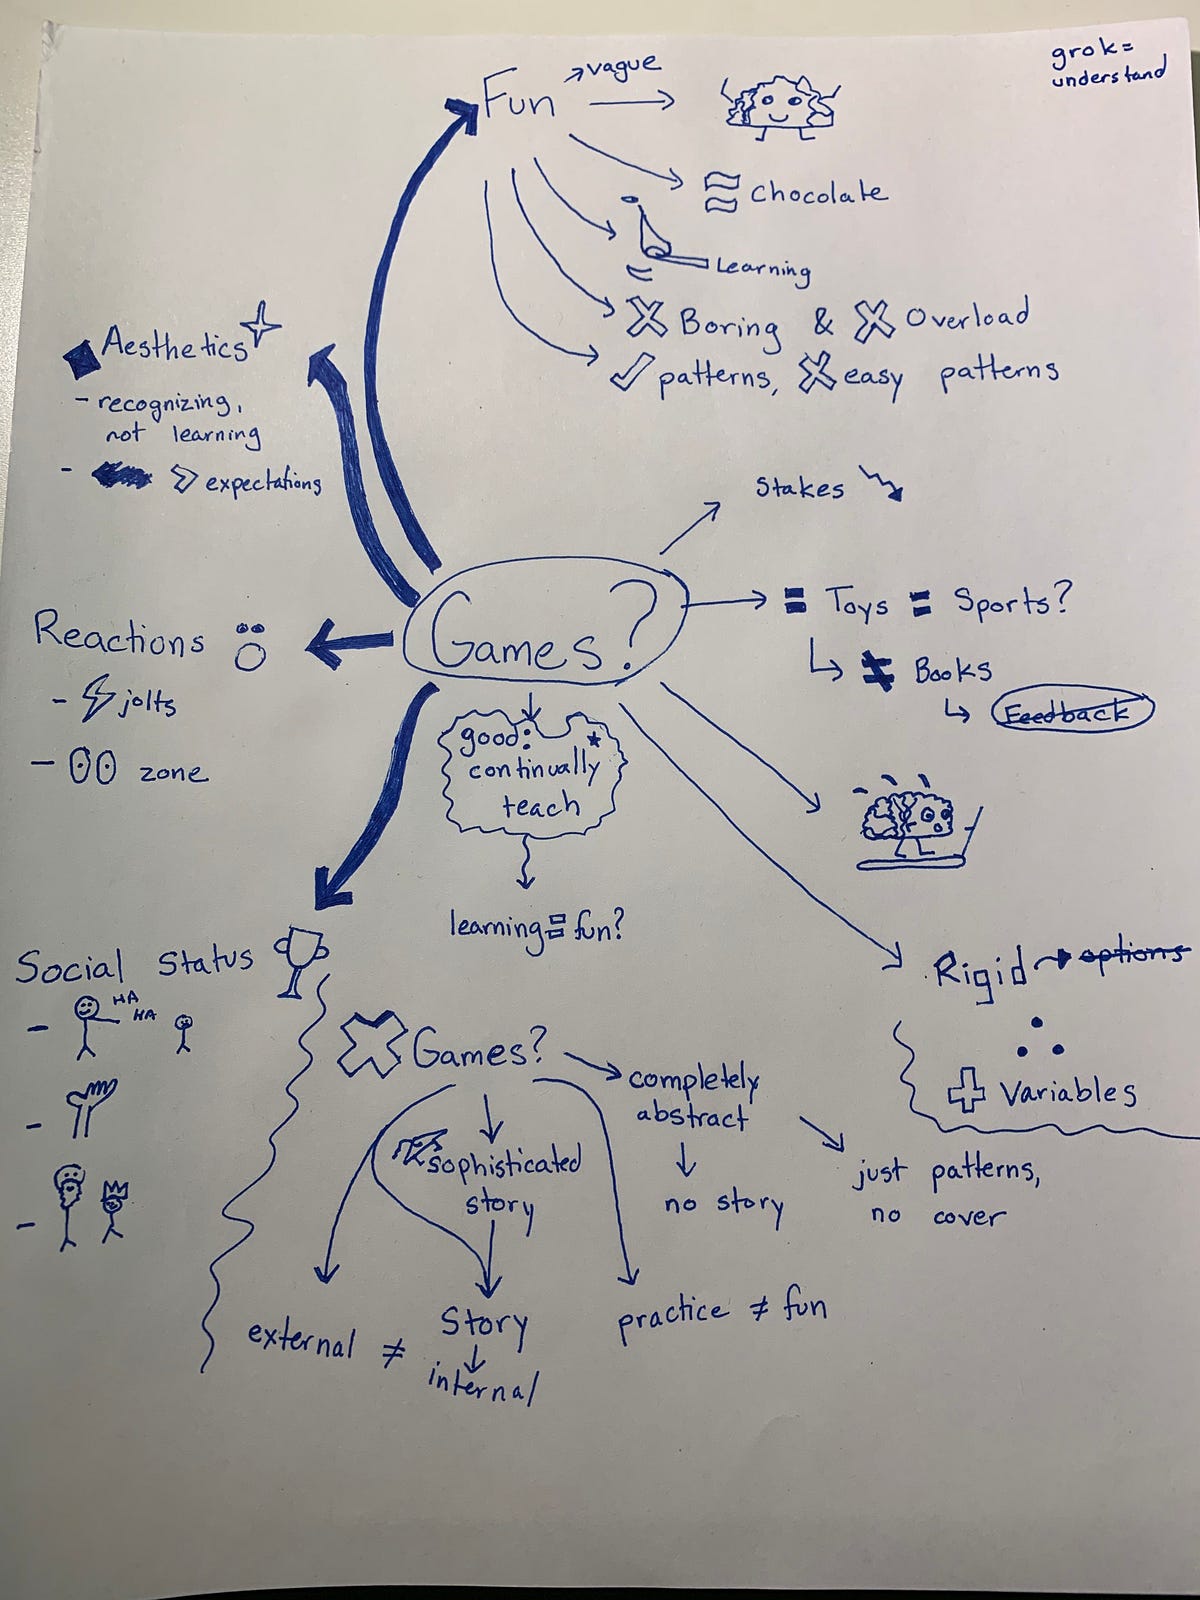 grok =
understand
Fun → vague
≈ Chocolate
Learning
Boring & Overload
patterns, easy patterns
Aesthetics
- recognizing,
not learning
- expectations
Stakes
Games?
= Toys = Sports?
≠ Books
Feedback
Reactions
- jolts
- zone
good:
continually*
teach
learning = fun?
Rigid → options
∴
+ Variables
Social Status
- HA
HA
Games?
completely
abstract
no story
just patterns,
no cover
sophisticated
story
external ≠ Story
internal
practice ≠ fun